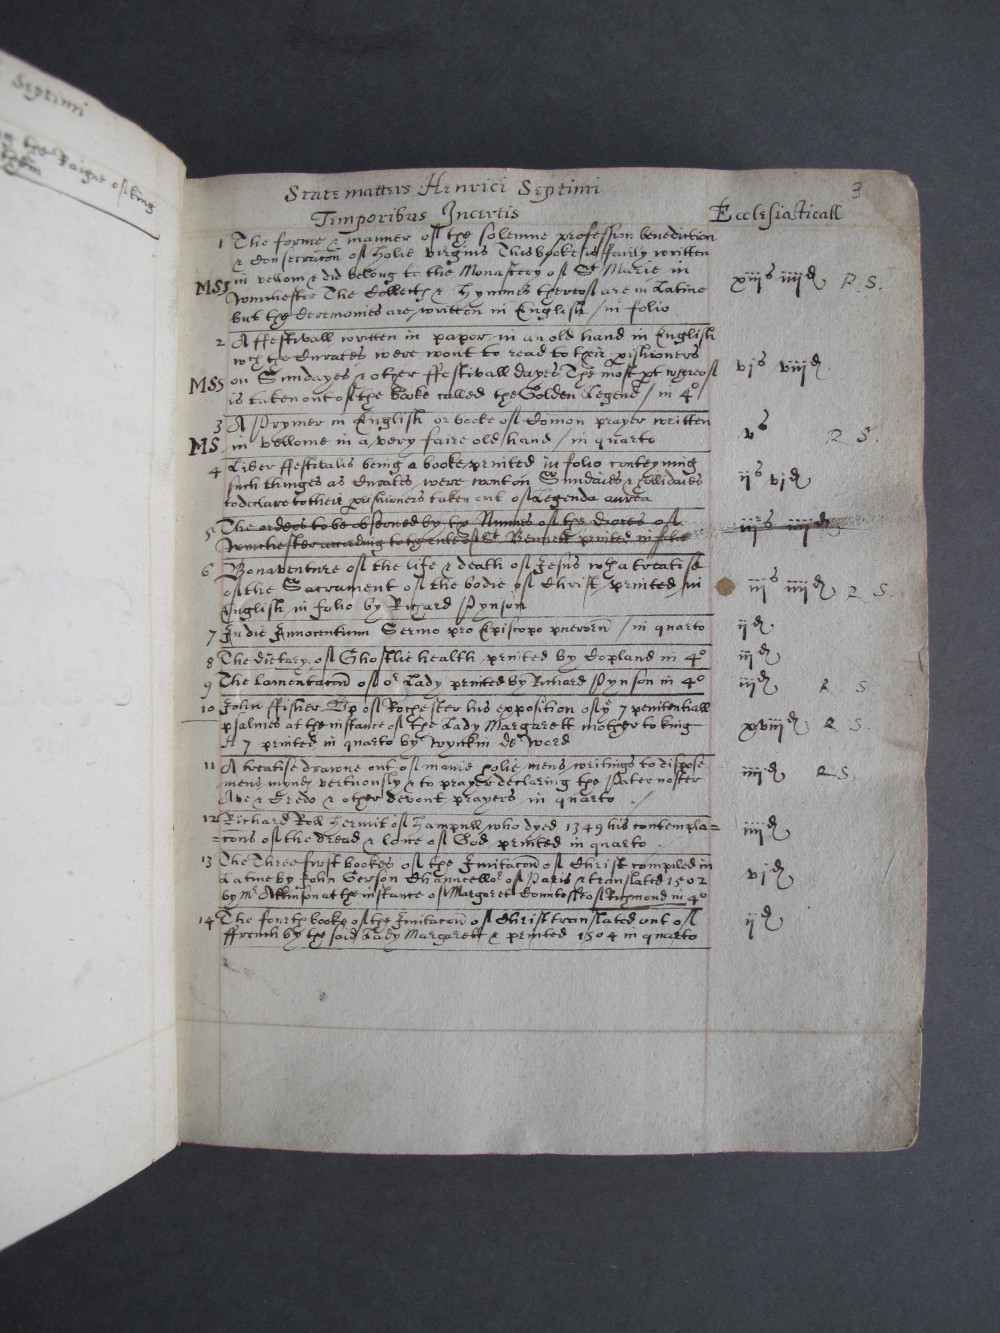 Septimi
the Raigne of King
them
3
State matters Henrici Septimi
Temporibus Incertis Ecclesiasticall
1 The forme & manner of the solemne profession benediction
& consecracon of holie virgins This booke is fairly written
MSS in vellom & did belong to the Monastery of St Marie in xiijs iiijd R. S.
Winchester The Collects & Hymmes thereof are in Latine
but the Ceremonies are written in English / in folio
2 A ffestivall written in paper in an old hand in English
wch the Curates were wont to read to their pishioners
MSS on Sundayes & other ffestivall dayes The most pt whereof vjs viijd
is taken out of the booke called the Golden Legend / in 4o
3 A Prymer in English or booke of Comon prayer written
MS in vellome in a very faire old hand / in quarto vs R S.
4 Liber ffestivalis being a booke printed in folio conteyning
such thinges as Curates were wont on Sundaies & hollidaies ijs vjd
to declare to their pishioners taken out of Legenda aurea
5 The orders to be observed by the Nunnes of the dioces of
Winchester according to the rule of St Bennett printed in folio iijs iiijd
6 Bonaventure of the life & death of Jesus wth a treatise
of the Sacrament of the bodie of Christ / printed in iijs iiijd R S.
English in folio by Richard Pynson
7 In die Innocentium Sermo pro Episcopo puerorum / in quarto ijd
8 The dietary of Ghostlie health printed by Copland in 4o iijd
9 The lamentacon of or Lady printed by Richard Pynson in 4o iijd R S
10 John ffisher Bp of Rochester his exposition of ye 7 penitentiall
psalmes at the instance of the Lady Margarett mother to king xviijd R S.
H 7 printed in quarto by Wynkin de Word
11 A treatise drawne out of manie holie mens writings to dispose
mens myndes vertuously & to prayer declaring the Pater noster iiijd R S.
Ave & Credo & other devout prayers in quarto
12 Richard Roll hermit of Hampull who dyed 1349 his contempla=
=cons of the dread & love of God printed in quarto iiijd
13 The Three first bookes of the Imitacon of Christ compiled in
Latine by John Gerson Chauncellor of Paris & translated 1502 vjd
by Mr Atkinson at the instance of Margaret Countesse of Richmond in 4o
14 The fourth booke of the Imitacon of Christ translated out of
ffrench by the said Lady Margarett & printed 1504 in quarto ijd